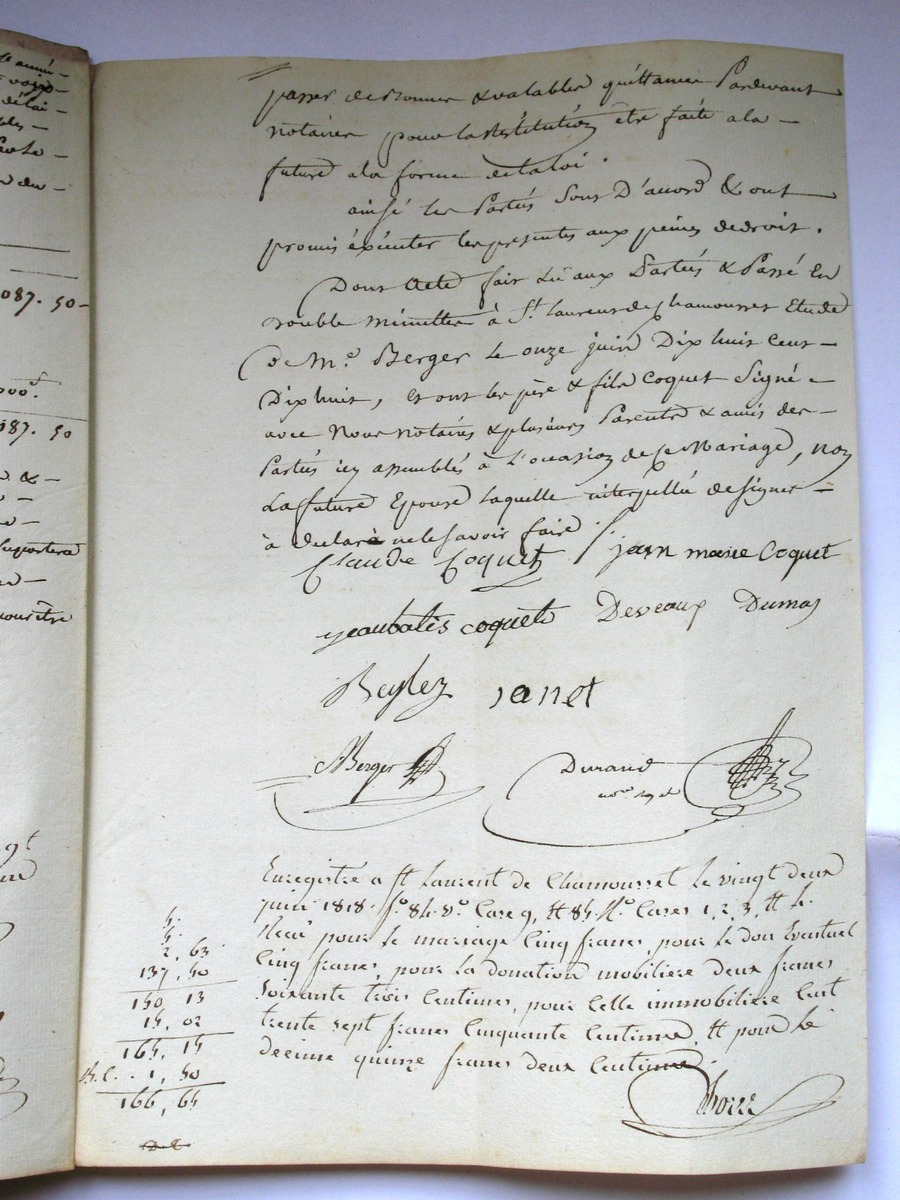 passer de bonnes & valables quittances Pardevant
notaires pour la Restitution être faite a la -
future a la forme de la loi.
ainsi les Partiés sont D'accord & ont
promis éxécuter les presentes aux peines de droit.
Dont Acte fait Lu aux Partiés & Passé En
Double minutte à St. Laurens de Chamousset Etude
De Me. Berger Le onze juin Dix huit Cent -
Dix huit, Et ont les père & fils Coquet Signé -
avec Nous notaires & plusieurs Parents & amis des -
Partiés icy assemblés à L'occasion de Ce Mariage, non
La future Epouse Laquelle interpellée de signer -
à declaré ne le savoir faire.
Claude Coquet jean marie Coquet
jeanbatis coquet Deveaux Dumas
Reylez janet
Berger
Durand
Enregistré a St Laurent de Chamousset le vingt deux
juin 1818. fo. 84. Vo. Case 9, Et 85. Ro. Cases 1, 2, 3, Et 4.
Recu pour le mariage Cinq francs, pour le don Eventuel
Cinq francs, pour la donation mobiliere deux francs
Soixante trois Centimes, pour Celle immobiliere Cent
trente Sept francs Cinquante Centimes, Et pour le
decime quinze francs deux Centimes
5.
5.
2, 63
137, 50
150, 13
15, 02
165, 15
1, 50
166, 65
087. 50
087. 50